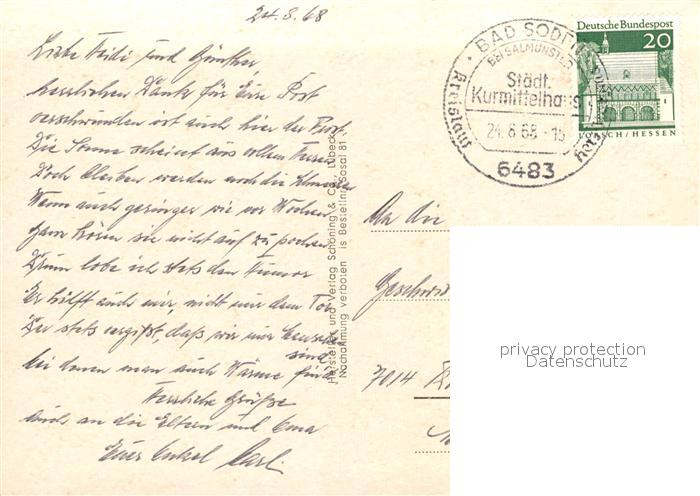 24.8.68
Liebe Heidi und Günther,
herzlichen Dank für Eure Post
verschwunden ist auch hier der Rost.
Die Sonne scheint aus vollen Herzen
Doch bleiben werden noch die Schmerzen
Wenn auch geringer wie vor Wochen
ganz hören sie nicht auf zu pochen
Drum lobe ich stets den Humor
Er hilft auch mir, nicht nur dem Tor
Der stets vergißt, daß wir nur Menschen
sind
bei denen man auch Wärme find
Herzliche Grüße
auch an die Eltern und Oma
Euer Onkel Carl.
Hersteller und Verlag Schöning & Co., Lübeck
Nachahmung verboten is Bestellnr. Sosal 81
BAD SODEN
BEI SALMÜNSTER
Städt.
Kurmittelhaus
24.8.68-15
6483
Deutsche Bundespost
20
LORSCH/HESSEN
An die
Geschwi
7014
privacy protection
Datenschutz